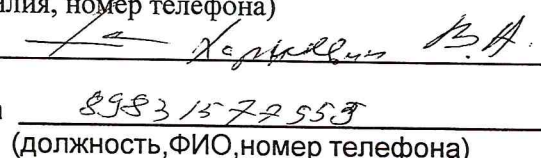 илия, номер телефона)
Харкевич В.А.
89831577555
(должность,ФИО,номер телефона)